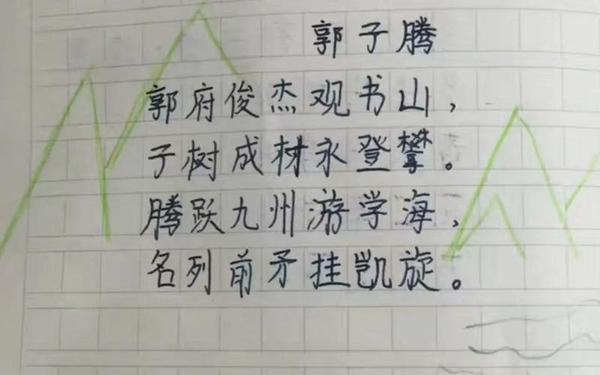 郭子腾
郭府俊杰观书山，
子树成材永登攀。
腾跃九州游学海，
名列前矛挂凯旋。